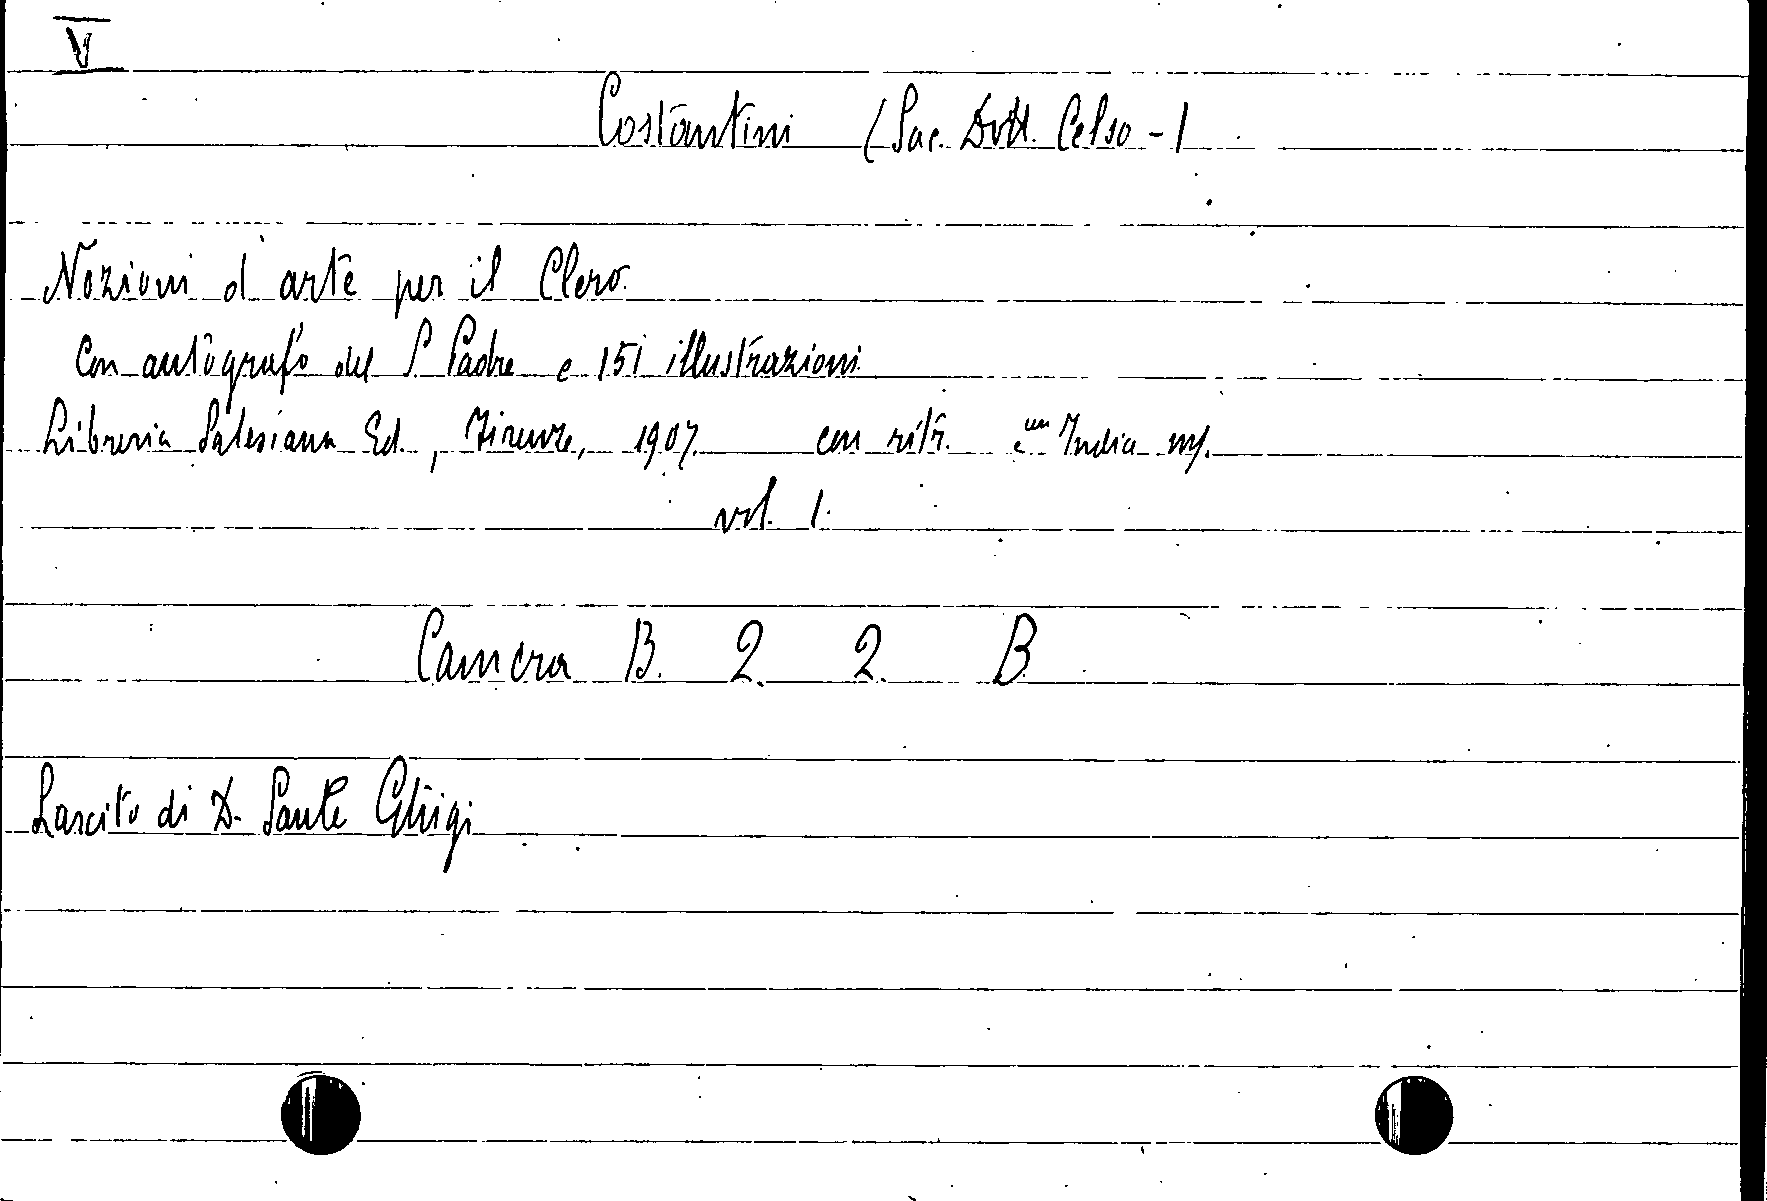 V
Costantini (Sac. Dott. Celso -)
Nozioni d'arte per il Clero.
Con autografo del S. Padre e 151 illustrazioni
Libreria Salesiana Ed., Firenze, 1907. con ritr. e un
vol. 1.
Camera B. 2. 2. B
Lascito di D. Sante Ghigi